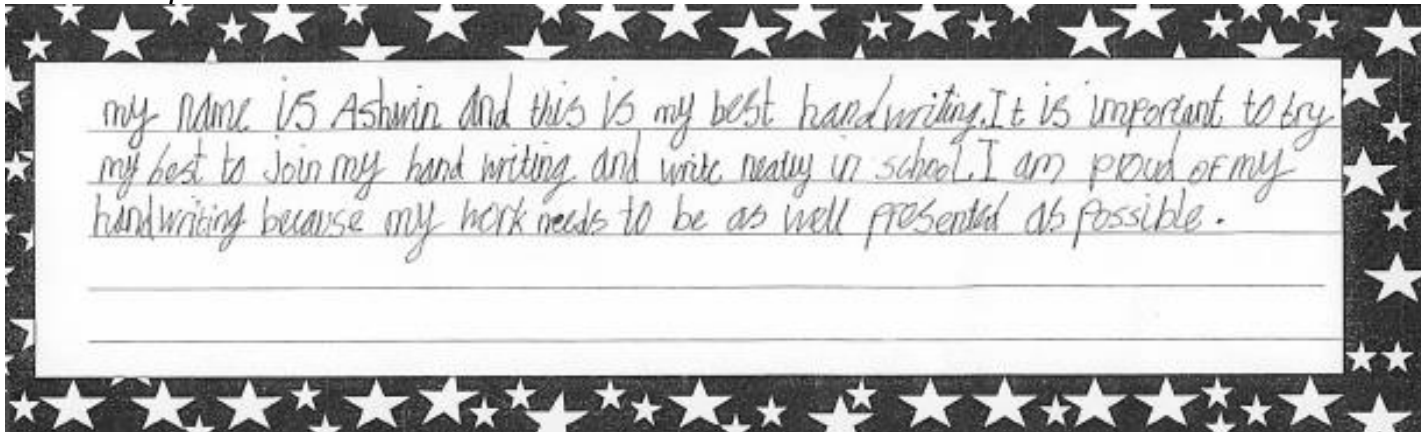 my name is Ashwin and this is my best handwriting. It is important to try
my best to join my hand writing and write neatly in school. I am proud of my
handwriting because my work needs to be as well presented as possible.